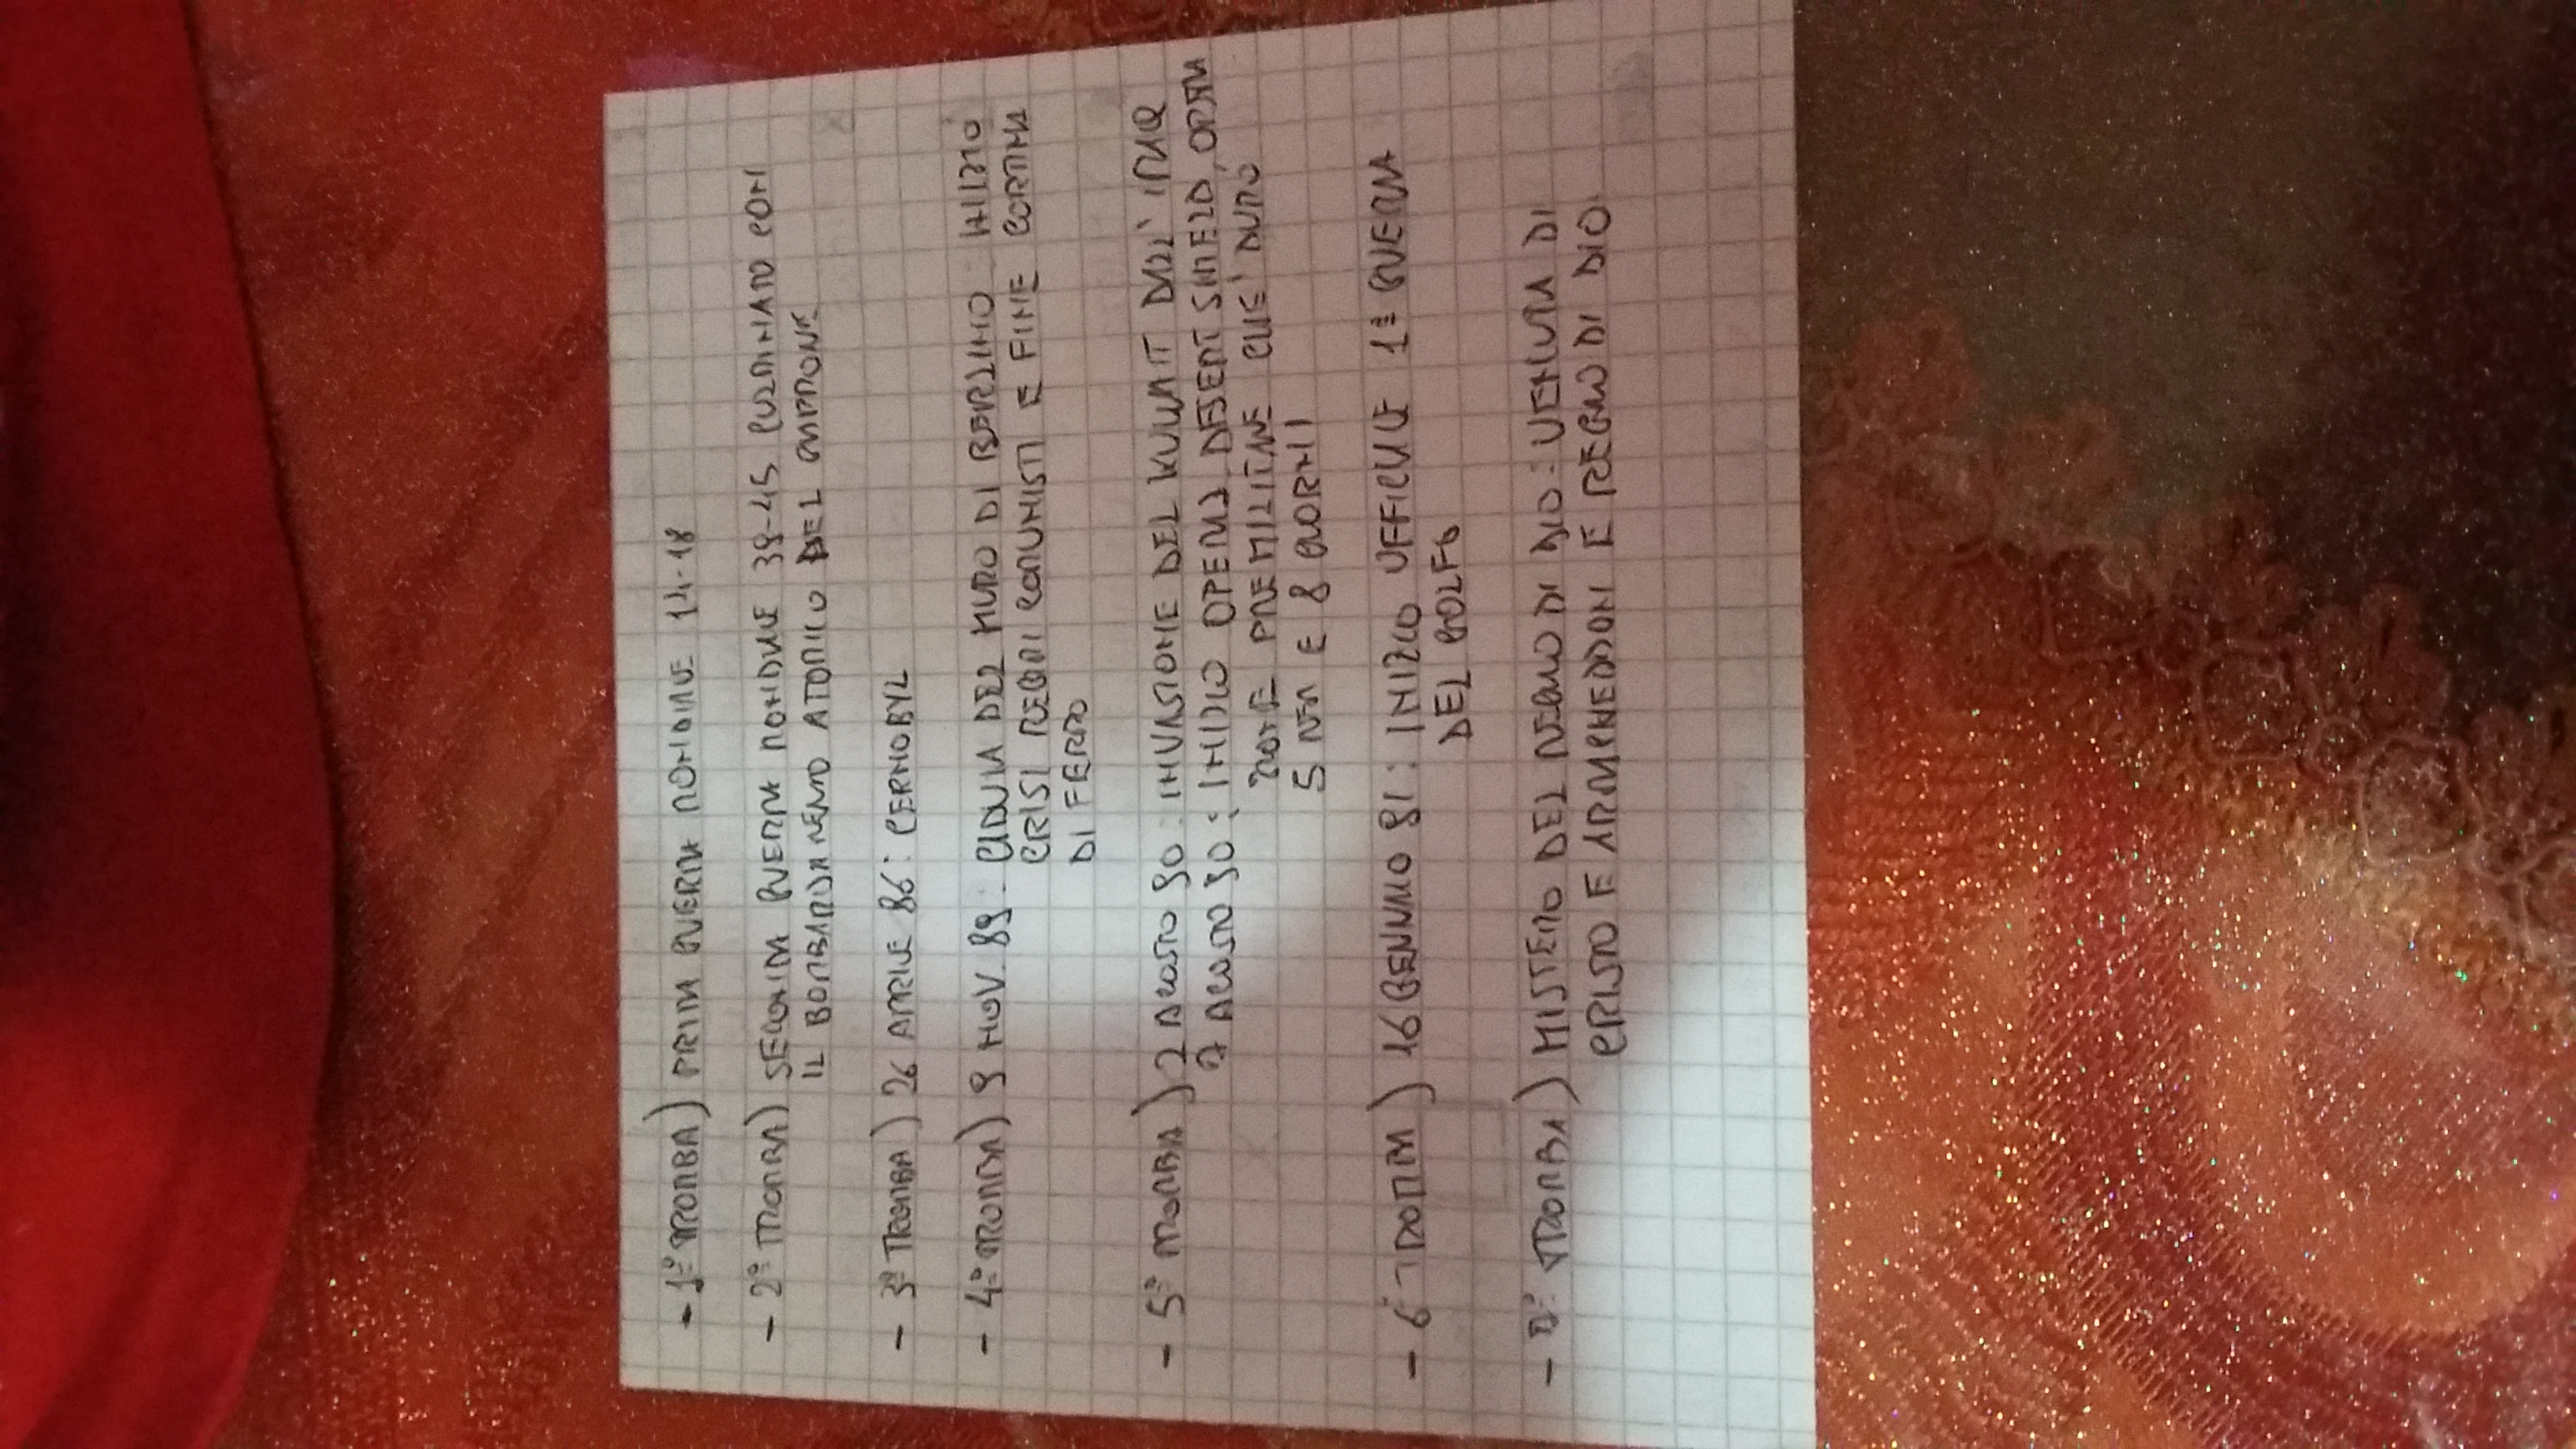 - 1° TROMBA) PRIMA GUERRA MONDIALE 14-18
- 2° TROMBA) SECONDA GUERRA MONDIALE 39-45 CULMINATO CON
IL BOMBARDAMENTO ATOMICO DEL GIAPPONE
- 3° TROMBA) 26 APRILE 86: CERNOBYL
- 4° TROMBA) 9 NOV. 89: CADUTA DEL MURO DI BERLINO: INIZIO
CRISI REGIMI COMUNISTI E FINE CORTINA
DI FERRO
- 5° TROMBA) 2 AGOSTO 90: INVASIONE DEL KUWAIT DALL' IRAQ
7 AGOSTO 90: INIZIO OPERAZ. DESERT SHIELD, OPERA
ZIONE PREMILITARE CHE' DURO
5 MESI E 8 GIORNI
- 6° TROMBA) 16 GENNAIO 91: INIZIO UFFICIALE 1ª GUERRA
DEL GOLFO
- 7° TROMBA) MISTERO DEL REGNO DI DIO: VENUTA DI
CRISTO E ARMAGHEDDON E REGNO DI DIO.